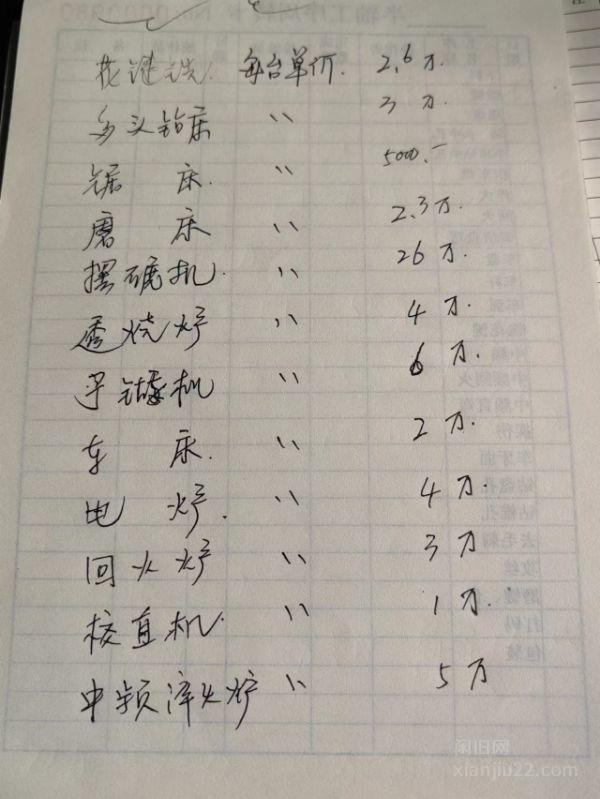 花键铣. 每台单价. 2.6万.
多头钻床 〃 3万.
锯床. 〃 5000.-
磨床 〃 2.3万.
摆碾机. 〃 26万.
透烧炉 〃 4万.
平锻机 〃 6万.
车床. 〃 2万.
电炉. 〃 4万.
回火炉 〃 3万
校直机. 〃 1万.
中频淬火炉 〃 5万
闲旧网
xianjiu22.com